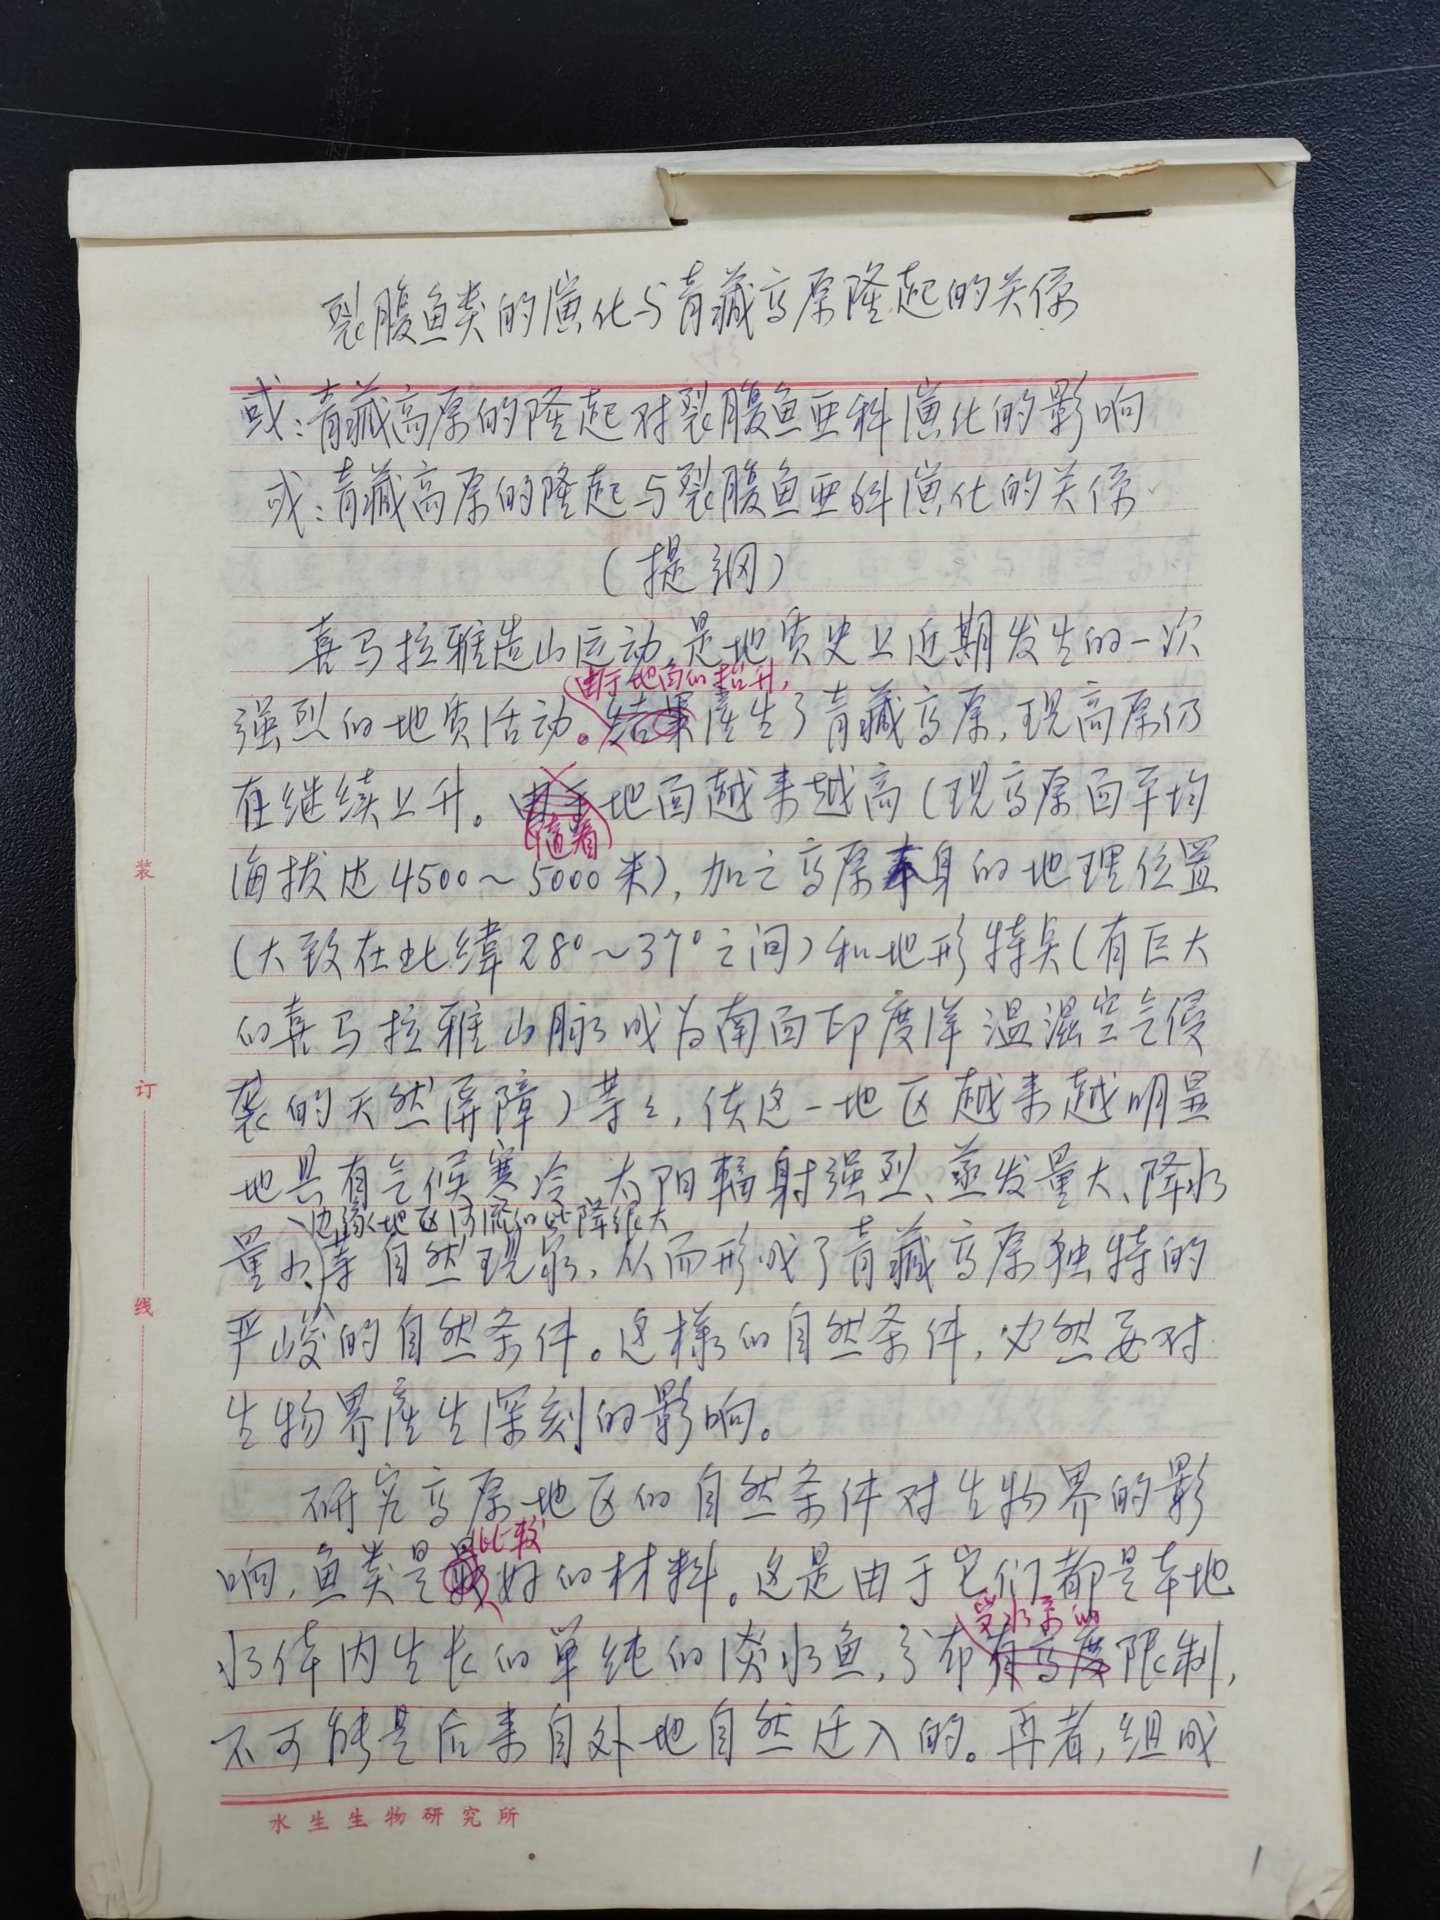 裂腹鱼类的演化与青藏高原隆起的关係
或:青藏高原的隆起对裂腹鱼亚科演化的影响
或:青藏高原的隆起与裂腹鱼亚科演化的关係
(提纲)
喜马拉雅造山运动,是地质史上近期发生的一次
由于地面的抬升,
强烈的地质活动。结果产生了青藏高原,现高原仍
在继续上升。由于地面越来越高(现高原面平均
随着
海拔达4500~5000米),加之高原本身的地理位置
(大致在北纬28°~37°之间)和地形特点(有巨大
的喜马拉雅山脉成为南面印度洋温湿空气侵
袭的天然屏障)等々,使这一地区越来越明显
地具有气候寒冷、太阳辐射强烈、蒸发量大、降水
、边缘地区河流的比降很大
量少等自然现象,从而形成了青藏高原独特的
严峻的自然条件。这样的自然条件,必然要对
生物界产生深刻的影响。
研究高原地区的自然条件对生物界的影
比较
响,鱼类是最好的材料。这是由于它们都是本地
受水系的
水体内生长的单纯的淡水鱼,分布有高度限制,
不可能是后来自外地自然迁入的。再者,组成
装
订
线
水生生物研究所
1